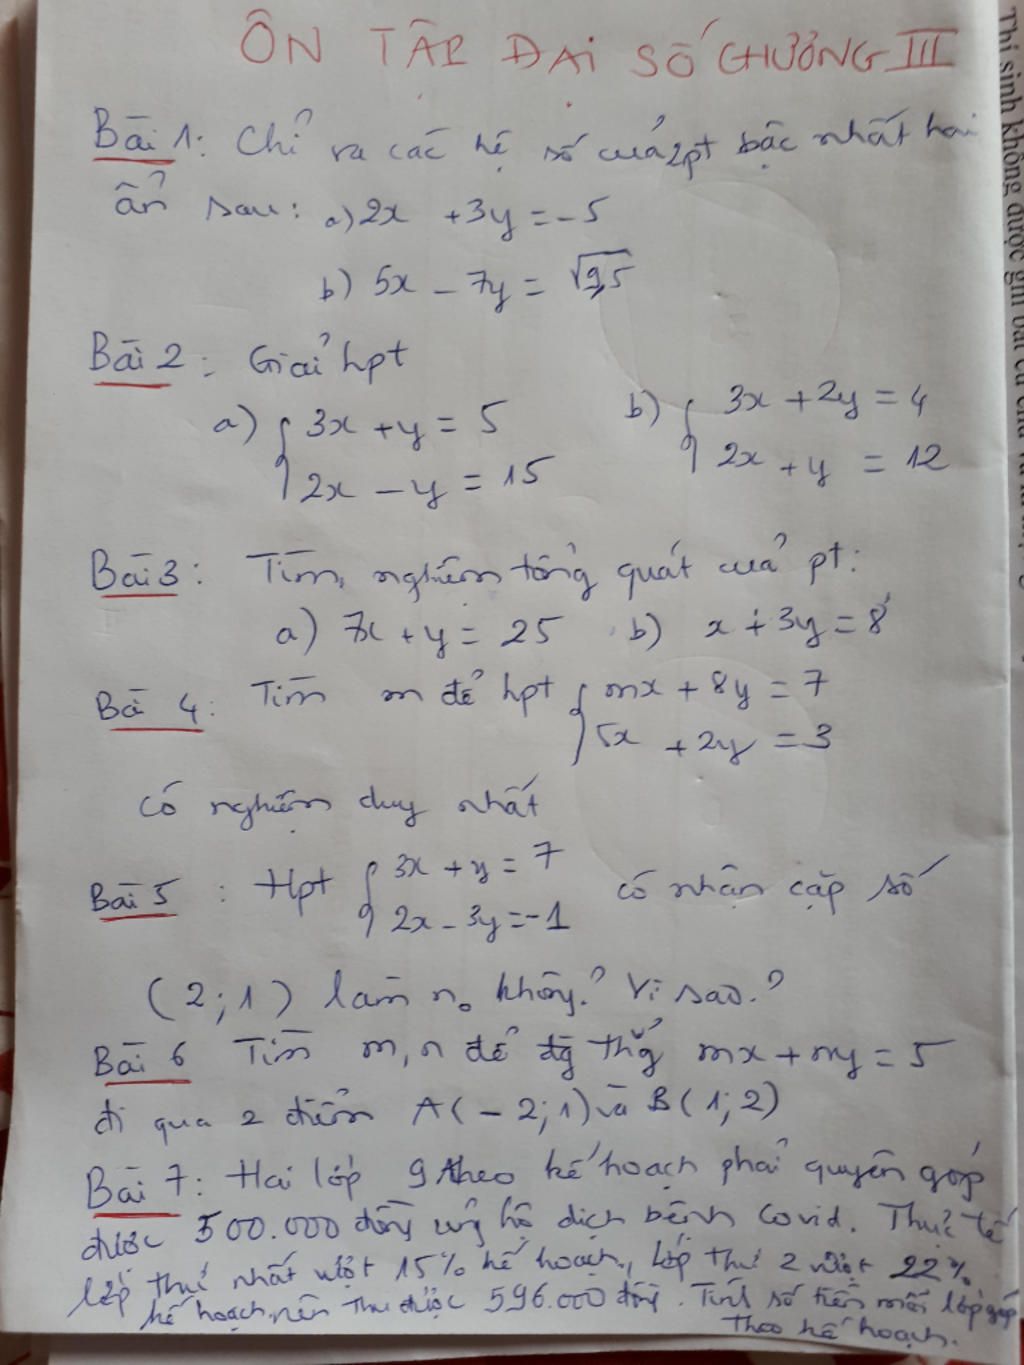 ÔN TẬP ĐẠI SỐ CHƯƠNG III
Bài 1: Chỉ ra các hệ số của 2pt bậc nhất hai
ẩn sau: a) 2x + 3y = -5
b) 5x - 7y = √9,5
Bài 2: Giải hpt
a) { 3x + y = 5
2x - y = 15
b) { 3x + 2y = 4
2x + y = 12
Bài 3: Tìm nghiệm tổng quát của pt:
a) 7x + y = 25 b) x + 3y = 8
Bài 4: Tìm m để hpt { mx + 8y = 7
5x + 2y = 3
có nghiệm duy nhất
Bài 5: Hpt { 3x + y = 7
2x - 3y = -1
có nhận cặp số
(2;1) làm no không? Vì sao?
Bài 6 Tìm m, n để đg thẳg mx + ny = 5
đi qua 2 điểm A(-2;1) và B(1;2)
Bài 7: Hai lớp 9 theo kế hoạch phải quyên góp
được 500.000 đồng ủng hộ dịch bệnh Covid. Thực tế
lớp thứ nhất vượt 15% kế hoạch, lớp thứ 2 vượt 22%
kế hoạch, nên thu được 596.000 đồng. Tính số tiền mỗi lớp góp
theo kế hoạch.
Thí sinh không được ghi bất cứ